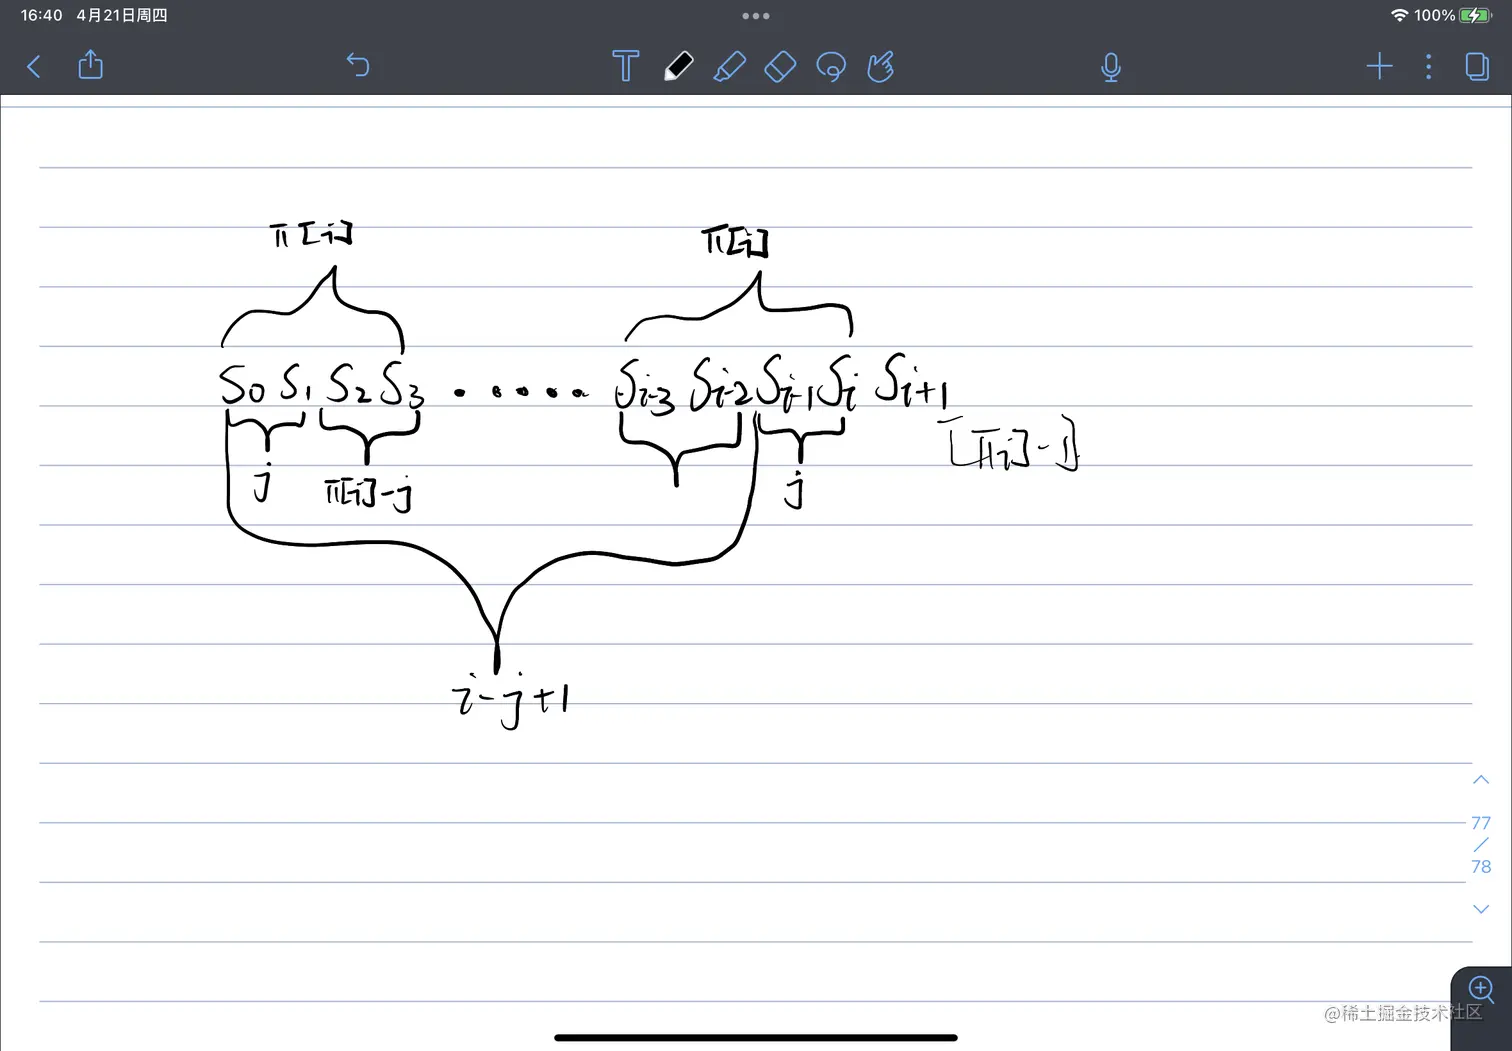 16:40 4月21日周四
100%
π[i] π[i]
S0 S1 S2 S3 ...... Si-3 Si-2 Si-1 Si Si+1
j π[i]-j j
i-j+1
77
/
78
@稀土掘金技术社区